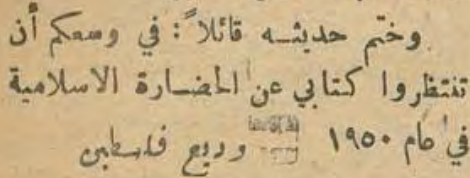 وختم حديثه قائلاً: في وسعكم أن
تنتظروا كتابي عن الحضارة الاسلامية
في عام ١٩٥٠ وديع فلسطين